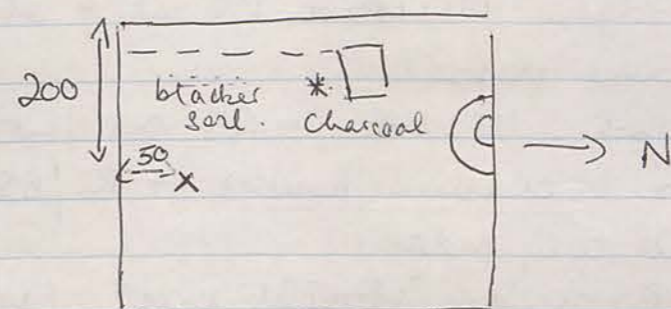 200
blacker * 
soil. Charcoal
50
X
N